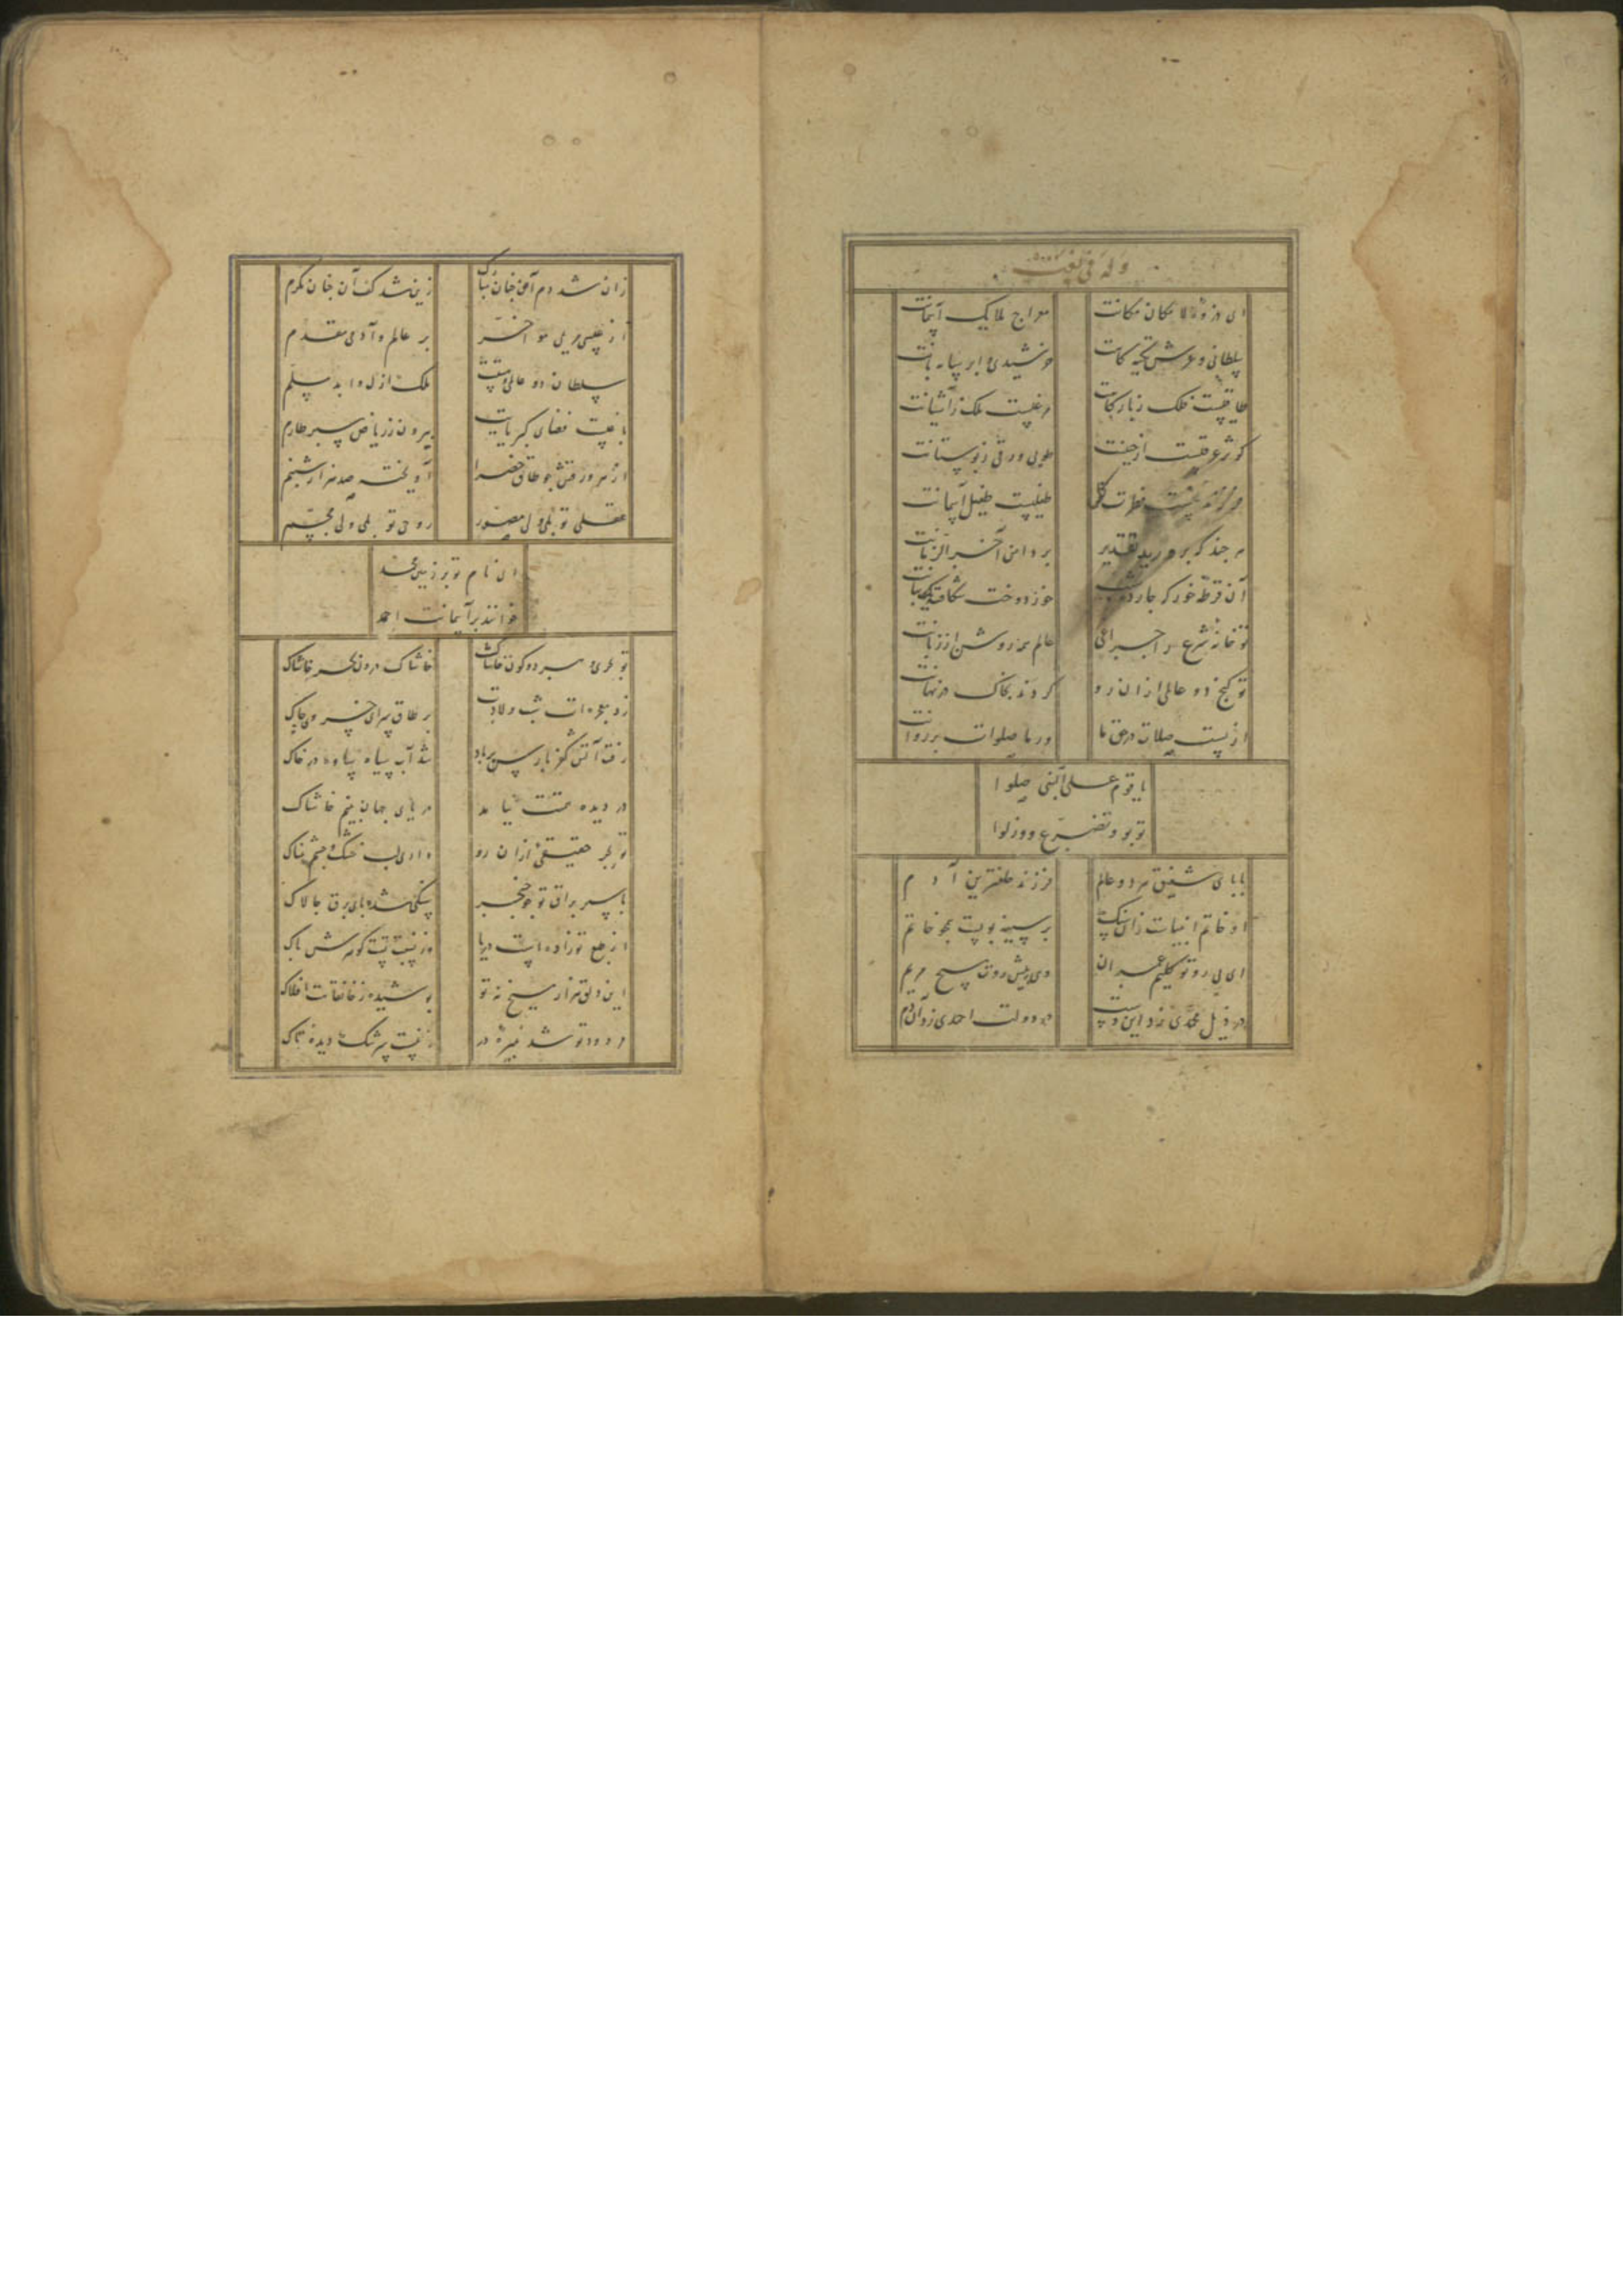 وله فی نعت
ای ذروهٔ لامکان مکانت معراج ملایک آستانت
سلطانی و عرش تکیه گاهت خورشیدی و ابر سایه بانت
طاقیست فلک ز بارگاهت مرغیست ملک ز آشیانت
کوثر عرقیست از جبینت طوبی ورقی ز بوستانت
طفلیست طفیل آستانت
هر چند که پرورید تقدیر در دامن آخر الزمانت
آن قرطهٔ خور که چارده شب خود دوخت شکافت
تو خانهٔ شرع را چراغی عالم همه روشن از زبانت
تو گنج دو عالمی ازان رو کردند بخاک در نهانت
از پست صلات در حق ما ور ما صلوات بر روانت
یا قوم علی النبی صلوا
توبوا و تضرعوا و ذلوا
بابای شفیق هر دو عالم فرزند خلف ترین آدم
او خاتم انبیاست زان سنگ بر سینه ببست همچو خاتم
ای پی رو تو کلیم عمران وی پیش روت مسیح مریم
در ذیل محمدی زد این دست در دولت احمدی زد آن دم
زان شد دم آن چنان مبارک زین شد کف آن چنان مکرم
از عیسی مریمی مؤخر بر عالم و آدمی مقدم
سلطان دو عالمی و هستت ملک ازل و ابد مسلم
باغیست فضای کبریایت بیرون ز ریاض سبز طارم
از هر ورقش چو طاق خضرا آویخته صد هزار شبنم
عقلی تو بلی ولی مصور روحی تو بلی ولی مجسم
ای نام تو بر زمین محمد
خوانند بر آسمانت احمد
تو بحری و هر دو کون خاشاک خاشاک درون بحر خاشاک
زد معجزه ات شب ولادت بر طاق سرای خسروی چاک
رفت آتش کفر پارس بر باد شد آب سیاه ساوه در خاک
در دیده همتت نیامد دریای جهان بنیم خاشاک
تو بحر حقیقتی ازان رو داری لب خشک و چشم نمناک
با سیر براق تو چو خنجر سنگی شده پای برق چالاک
از طبع تو زاده است دریا وز نسبت تست گوهرش پاک
این دلق هزار میخ نه تو پوشیده ز خانقاهت افلاک
مردود تو شد نبیره در